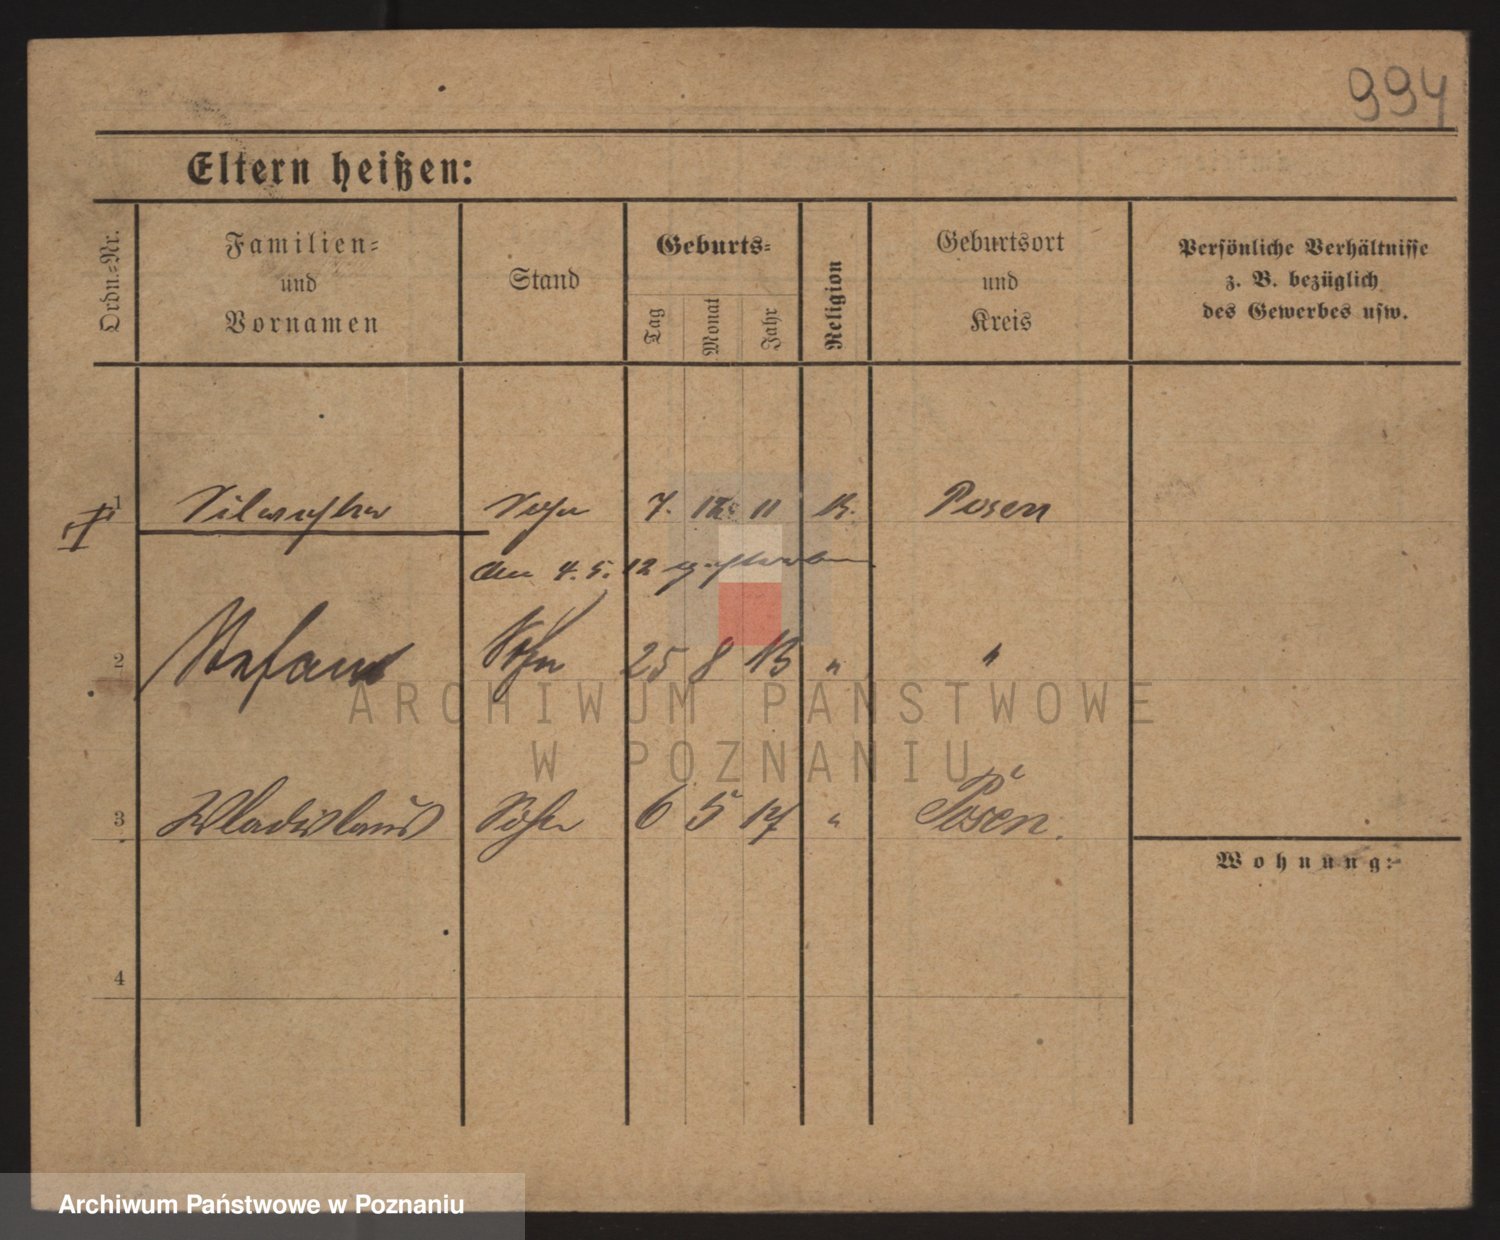 994
Eltern heißen:
Ordn.-Nr.
Familien-
und
Vornamen
Stand
Geburts-
Tag
Monat
Jahr
Religion
Geburtsort
und
Kreis
Persönliche Verhältnisse
z. B. bezüglich
des Gewerbes usw.
1 Silvester Sohn 7. 12. 11 k. Posen
den 4. 5. 12 gestorben
2 Stefan Sohn 25 8 13 " "
ARCHIWUM PAŃSTWOWE
W POZNANIU
3 Wladislaus Sohn 6 5 17 " Posen.
Wohnung:
4
Archiwum Państwowe w Poznaniu